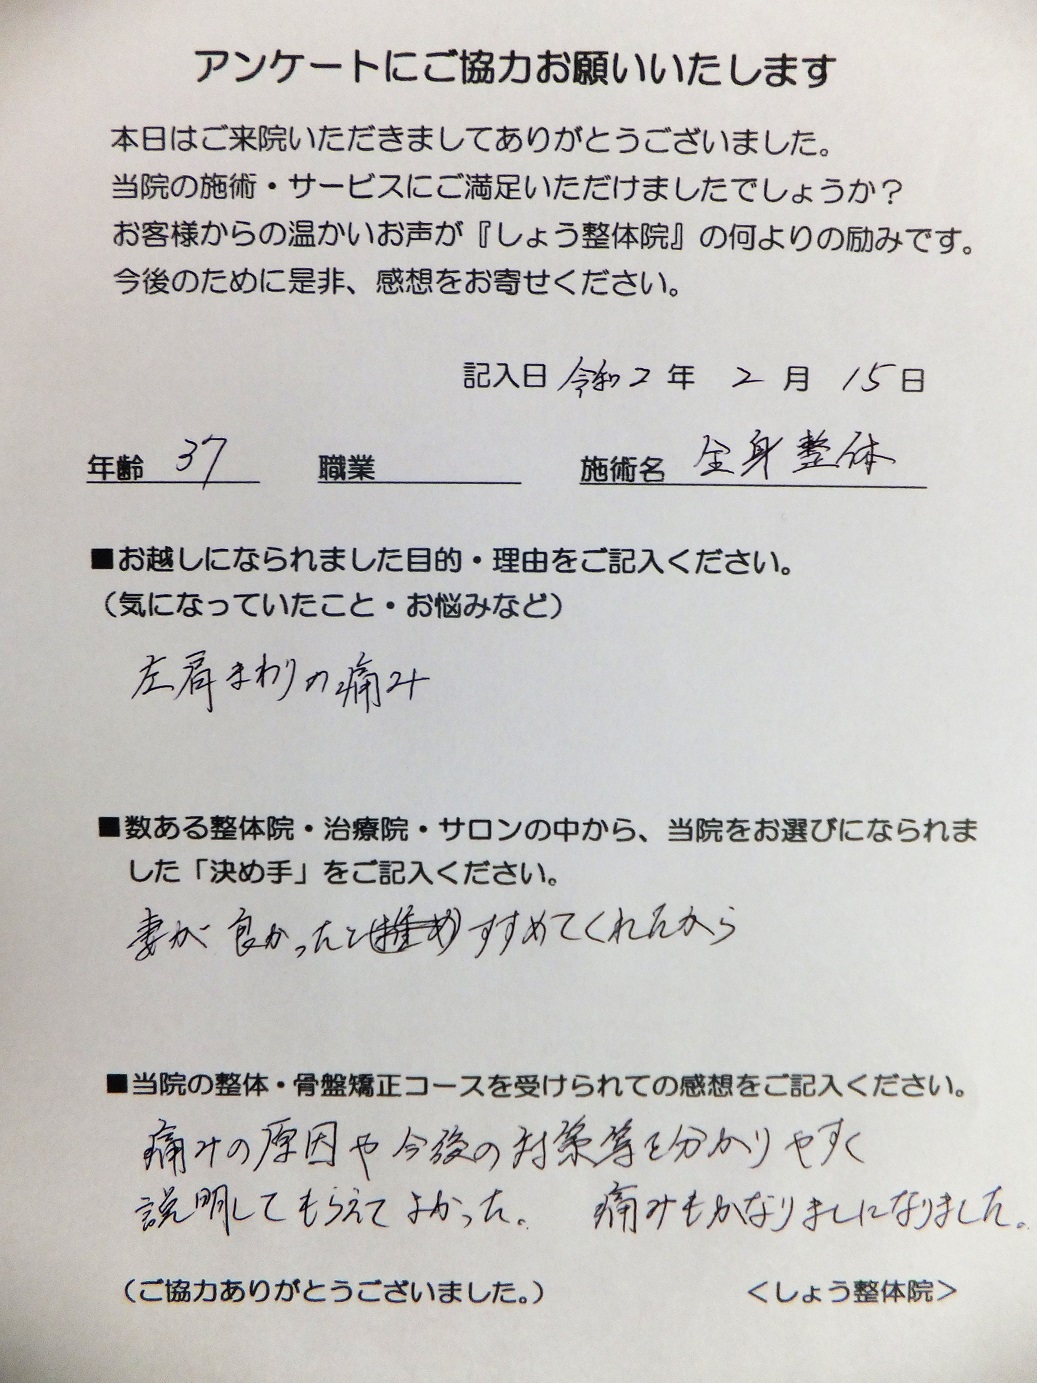 アンケートにご協力お願いいたします
本日はご来院いただきましてありがとうございました。
当院の施術・サービスにご満足いただけましたでしょうか？
お客様からの温かいお声が『しょう整体院』の何よりの励みです。
今後のために是非、感想をお寄せください。
記入日 令和2 年 2 月 15 日
年齢 37 職業 施術名 全身整体
■お越しになられました目的・理由をご記入ください。
（気になっていたこと・お悩みなど）
左肩まわりの痛み
■数ある整体院・治療院・サロンの中から、当院をお選びになられま
した「決め手」をご記入ください。
妻が良かったとすすめてくれたから
■当院の整体・骨盤矯正コースを受けられての感想をご記入ください。
痛みの原因や今後の対策等を分かりやすく
説明してもらえてよかった。 痛みもかなりましになりました。
（ご協力ありがとうございました。） ＜しょう整体院＞